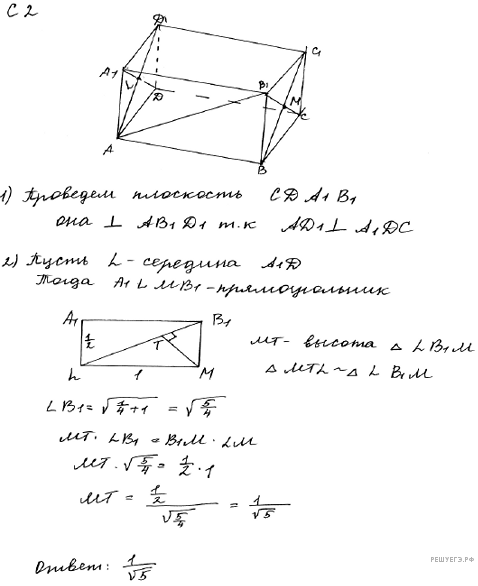 С2
D1
C1
A1
B1
L
M
D
C
A
B
1) Проведем плоскость CDA1B1
она ⊥ AB1D1 т.к AD1 ⊥ A1DC
2) Пусть L - середина A1D
Тогда A1LMB1 - прямоугольник
A1 B1
1/2 T
L 1 M
МТ - высота △ LB1M
△ MTL ~ △ LB1M
LB1 = √(1/4 + 1) = √(5/4)
MT · LB1 = B1M · LM
MT · √(5/4) = 1/2 · 1
MT = (1/2)/√(5/4) = 1/√5
Ответ: 1/√5
РЕШУЕГЭ.РФ